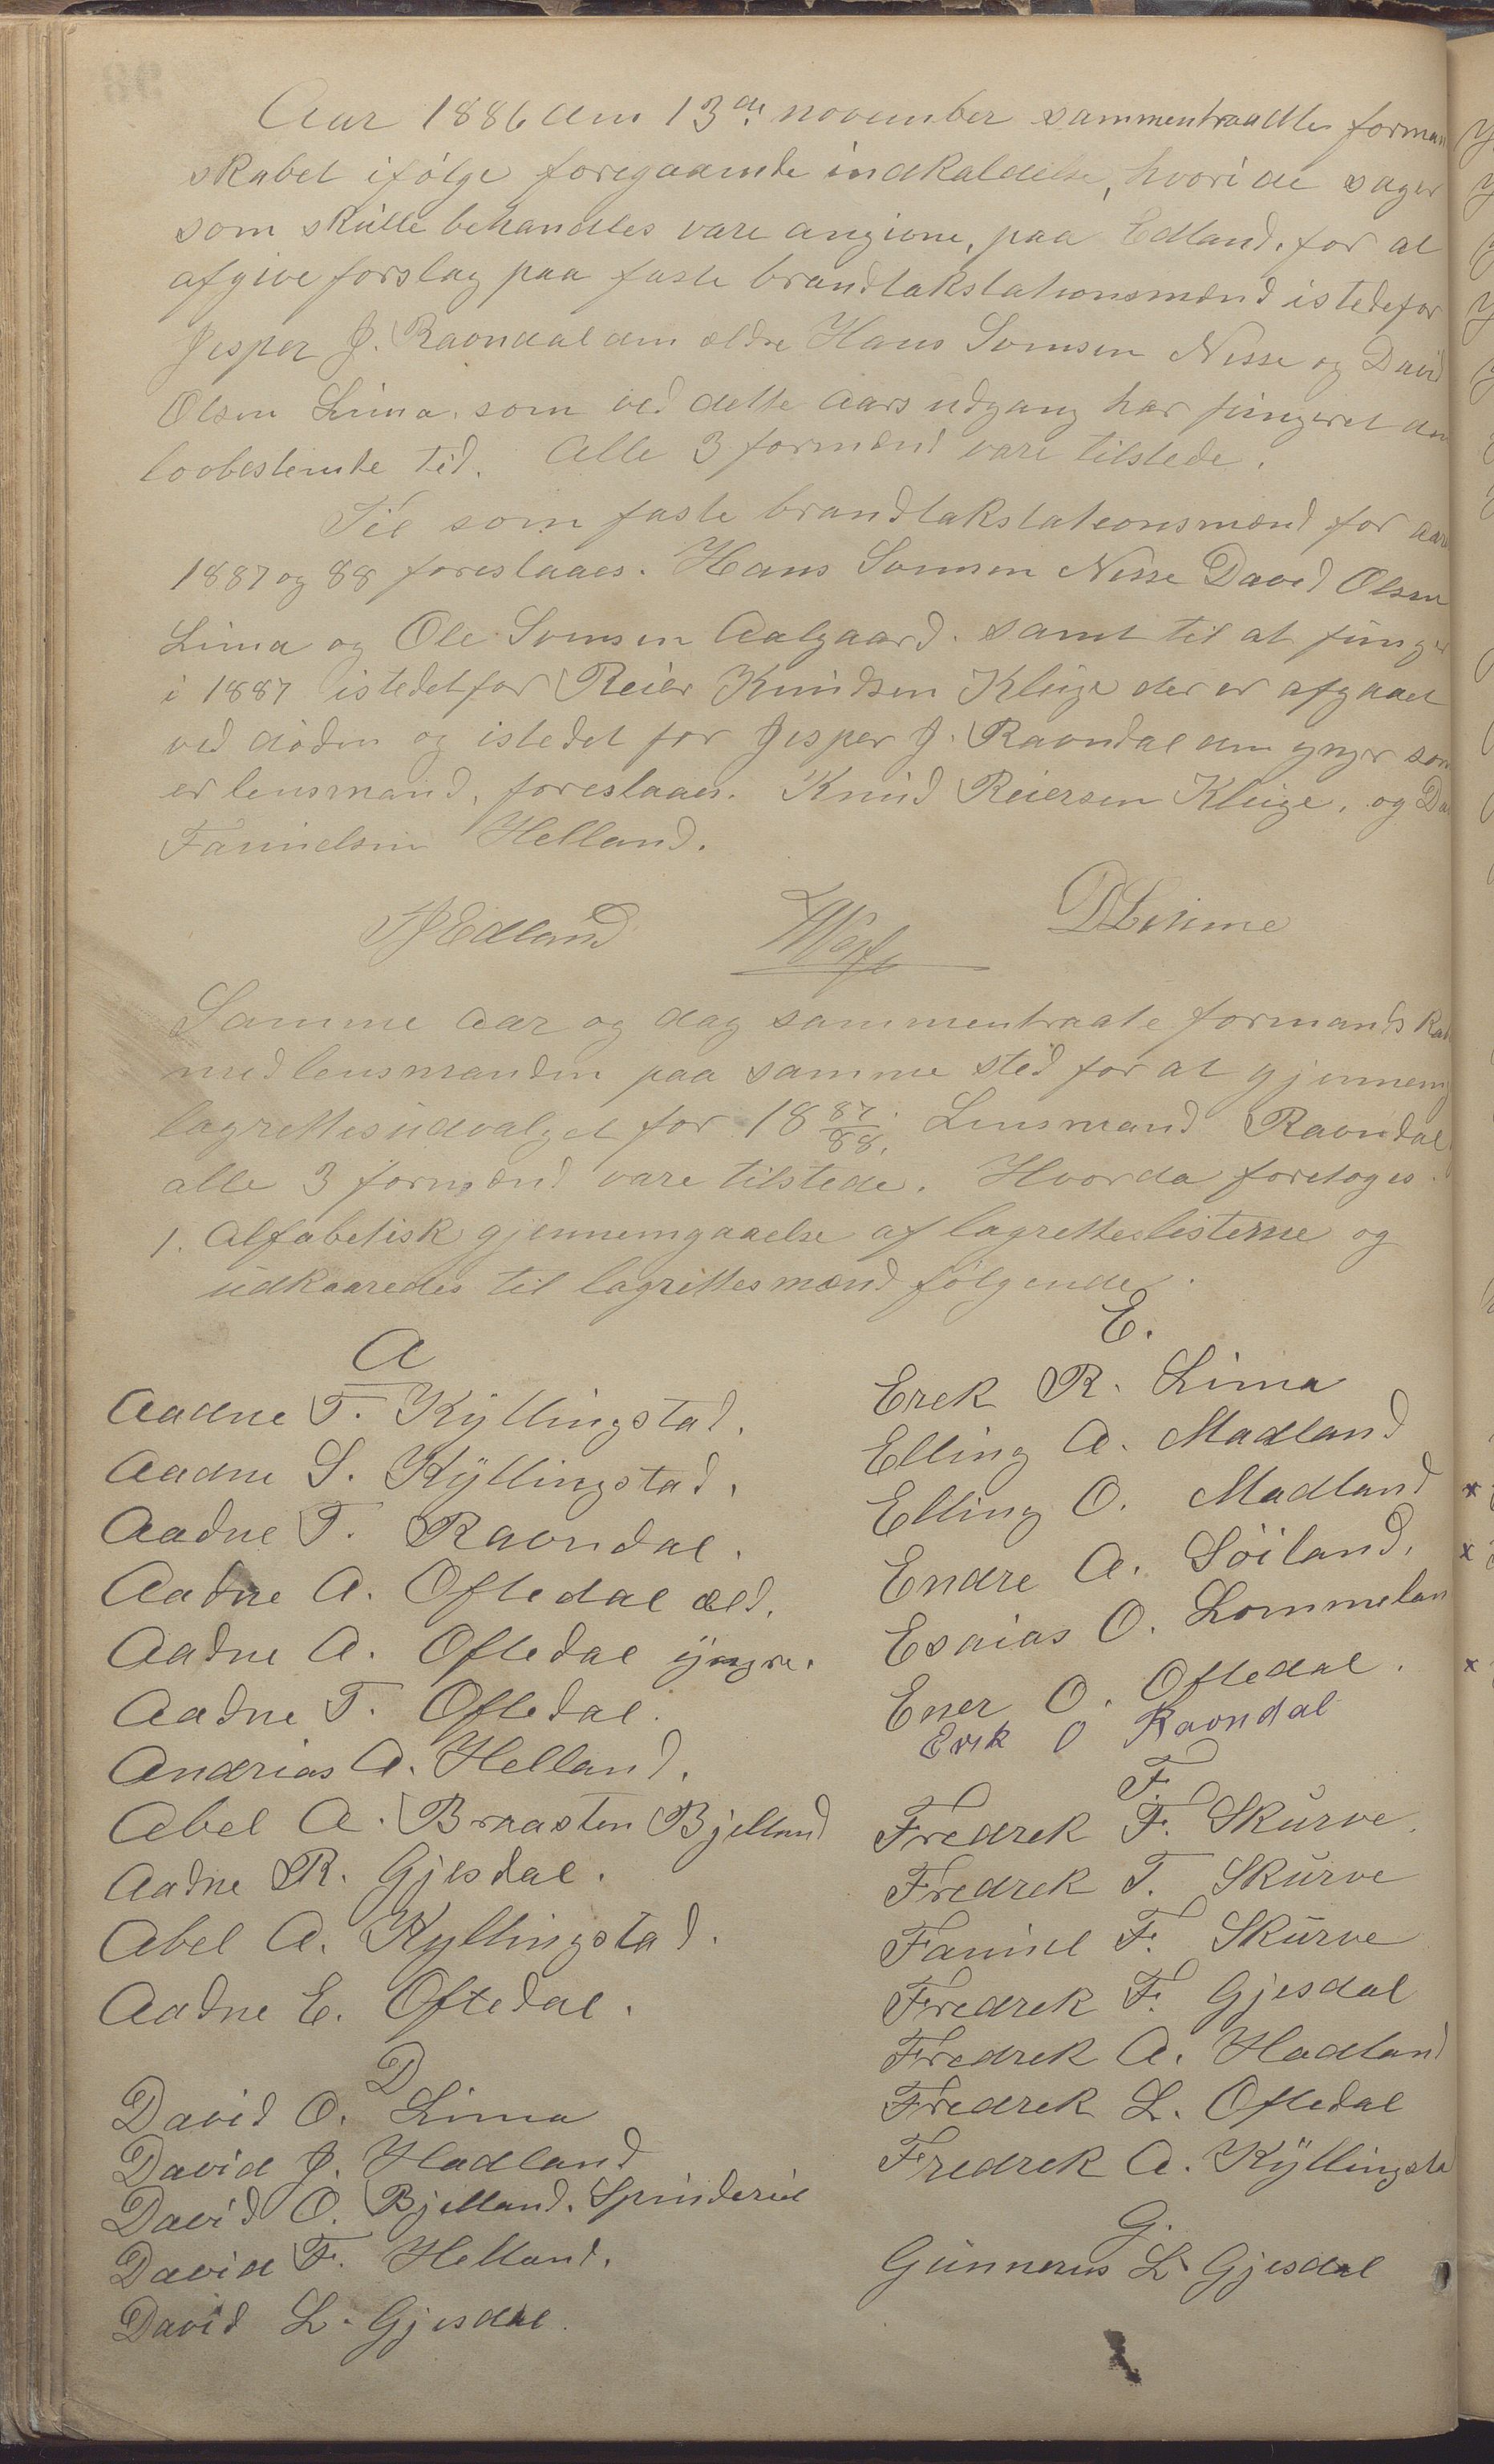 Aar 1886 den 13de november sammentraadte forman
skabet ifølge foregaaende indkaldelse, hvori de sager
som skulle behandles vare angivne, paa Edland, for at
afgive forslag paa faste brandtakstationsmænd istedefor
Jesper J. Ravndal den ældre Hans Svensen Nesse og David
Olsen Lima, som ved dette aars udgang har fungeret den
lovbestemte tid. Alle 3 formænd vare tilstede.
Til som faste brandtakstationsmænd for aar
1887 og 88 foreslaaes. Hans Svensen Nesse David Olsen
Lima og Ole Svensen Aalgaard. samt til at funger
i 1887 istedetfor Reier Knudsen Kluge der er afgaaet
ved døden og istedet for Jesper J. Ravndal den yngr som
er lensmand, foreslaaes. Knud Reiersen Kluge, og Da
Faniielsen Helland.
Edland
DLimme
Samme aar og dag sammentraate formandska
med lensmanden paa samme sted for at gjennem
lagrettesudvalget for 18 87/88. Lensmand Ravndal
alle 3 formænd vare tilstede. Hvorda foretoges.
1. Alfabetisk gjennemgaaelse af lagretteslisterne og
udkaaredes til lagrettesmænd følgende.
A
Aadne T. Kÿllingstad.
Aadne S. Kÿllingstad.
Aadne T. Ravndal.
Aadne A. Oftedal æld.
Aadne A. Oftedal ÿngre.
Aadne T. Oftedal.
Andrias A. Helland.
Abel A. Braasten Bjelland
Aadne R. Gjesdal.
Abel A. Kyllingstad.
Aadne E. Oftedal.
D
David O. Lima
David J. Hadland
David O. Bjelland. Spinderiet
David F. Helland.
David L. Gjesdal.
E.
Erek R. Lima
Elling A. Madland
Elling O. Madland
Endre A. Søiland.
Esaias O. Lommelan
Ener O. Oftedal.
Erik O Ravndal
F.
Fredrek F. Skurve.
Fredrek T. Skurve
Faniel F. Skurve
Fredrek F. Gjesdal
Fredrek A. Hadland
Fredrek L. Oftedal
Fredrek A. Kÿllingsta
G.
Gunnerus L. Gjesdal